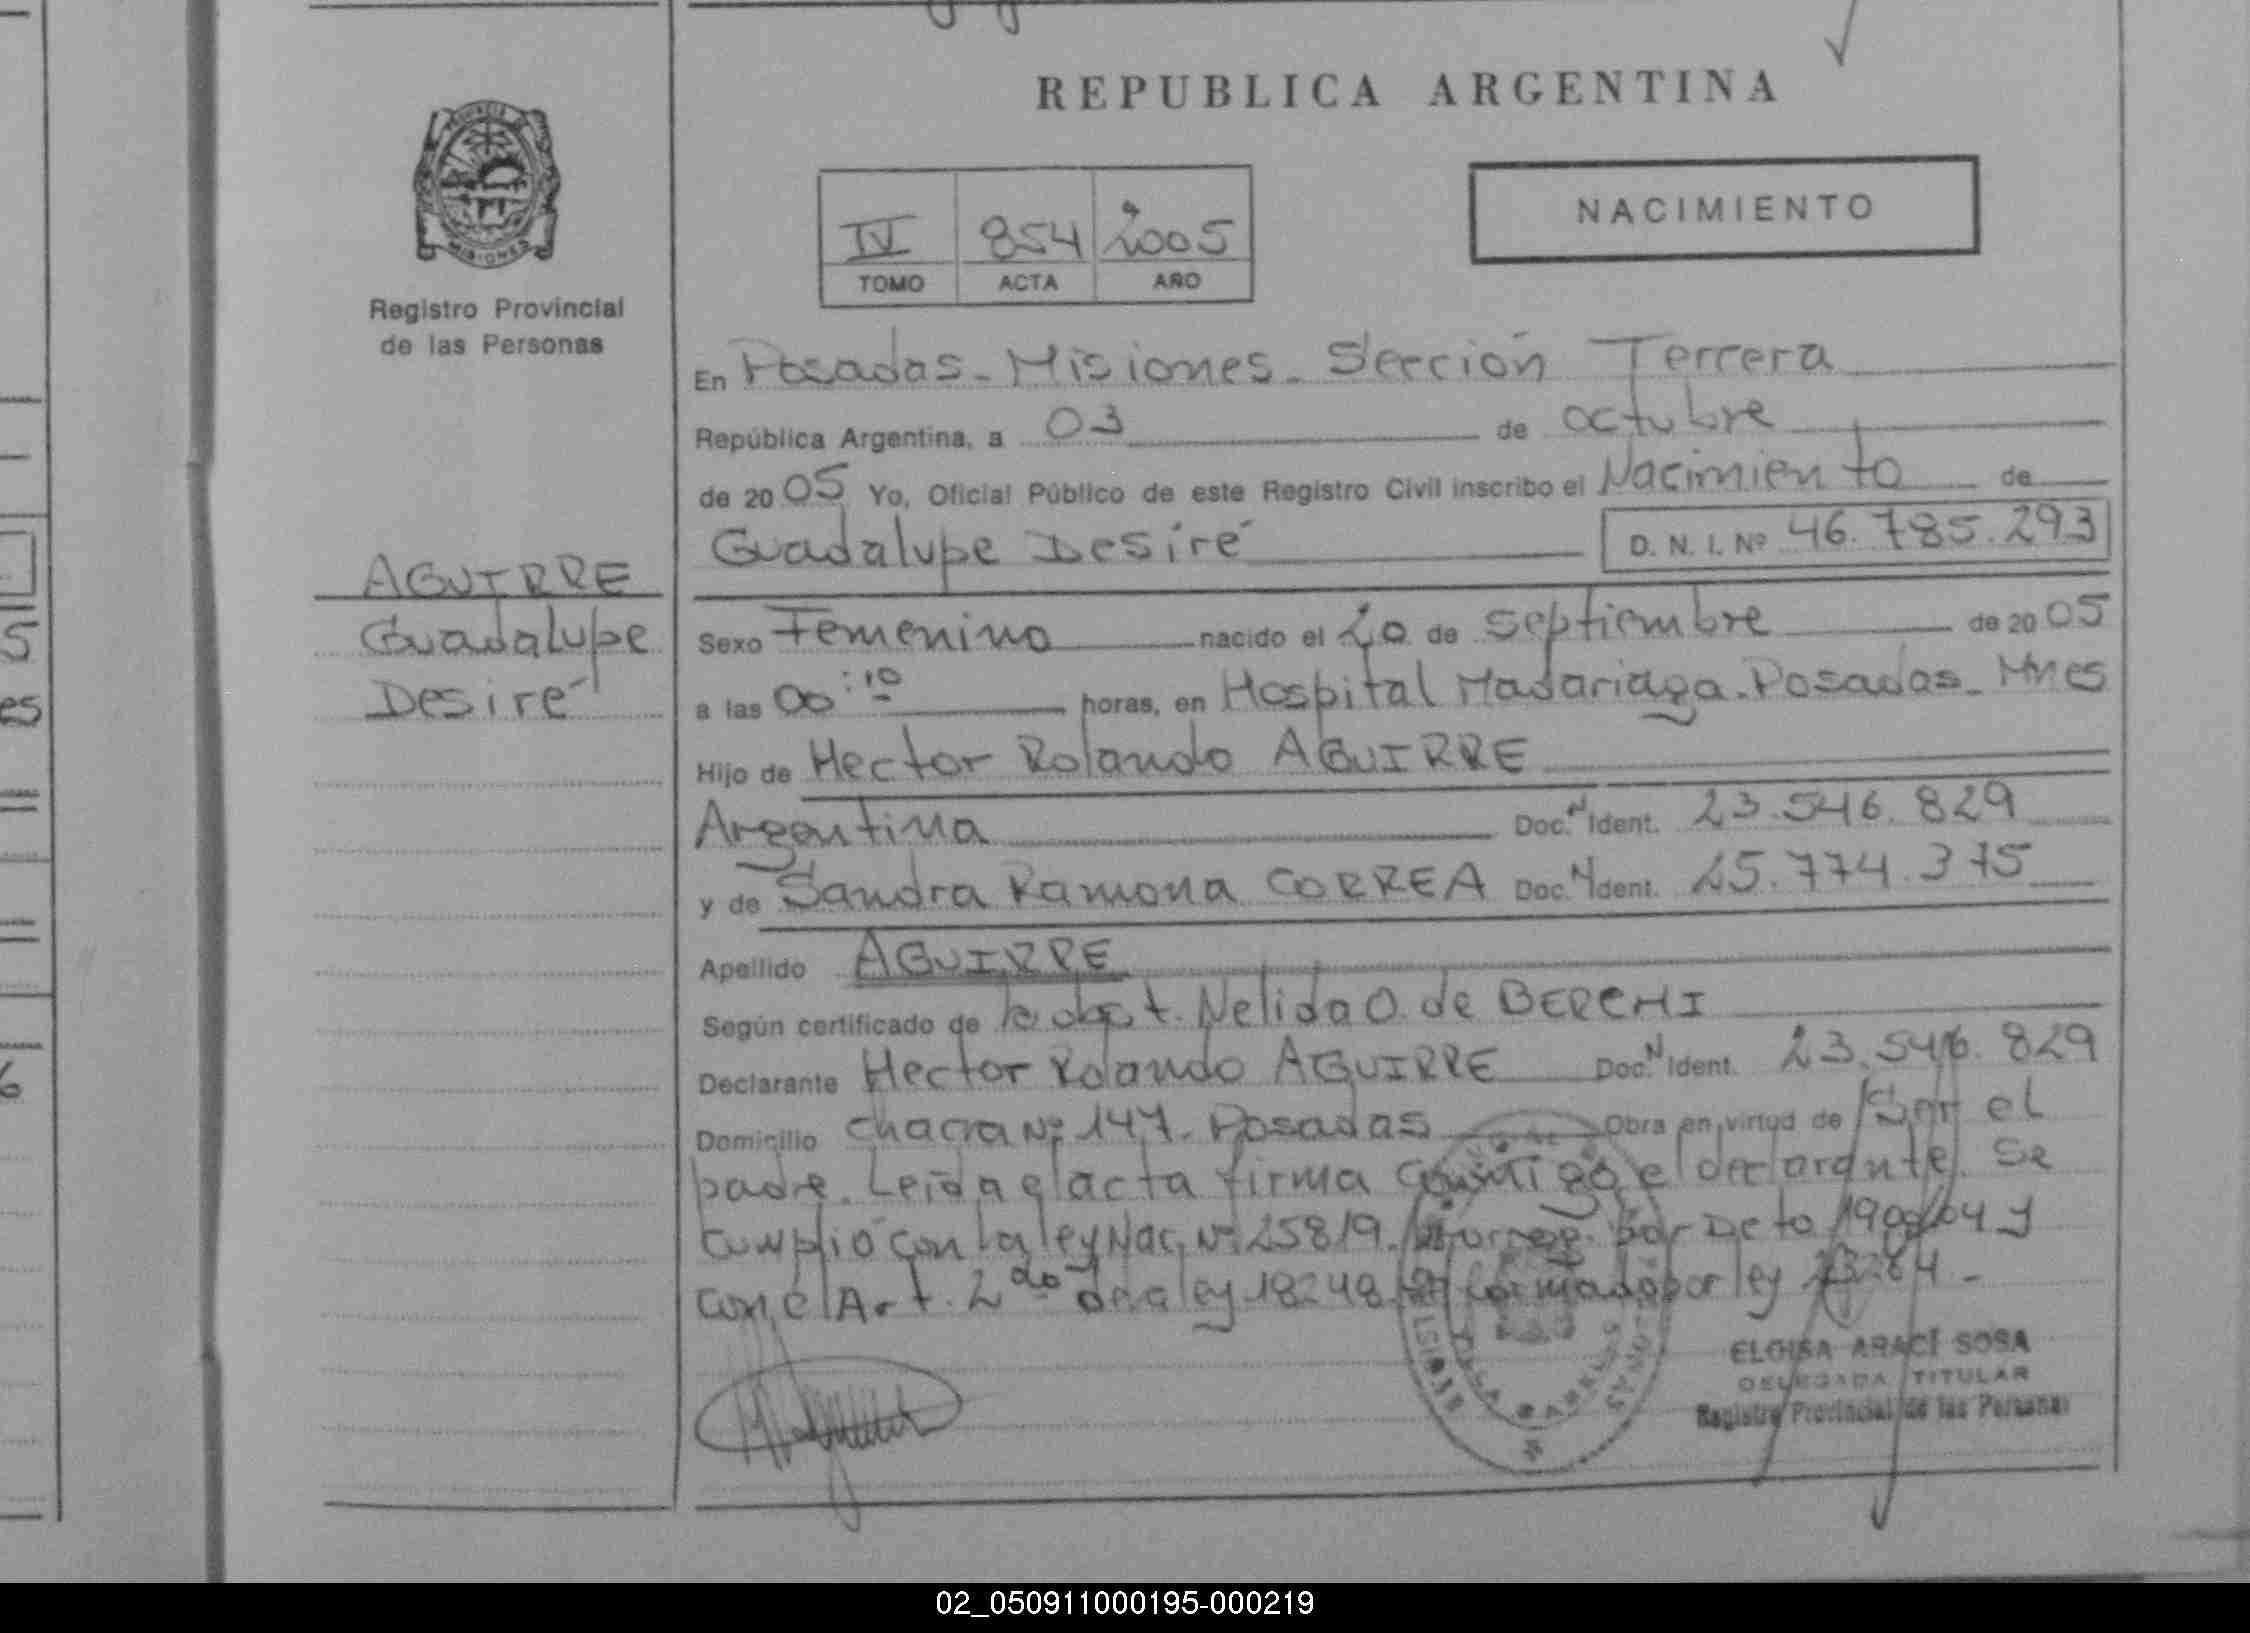 REPUBLICA ARGENTINA
PROVINCIA DE
MISIONES
Registro Provincial
de las Personas
IV 854 2005
TOMO ACTA AÑO
NACIMIENTO
En Posadas - Misiones - Sección Tercera
República Argentina, a 03 de octubre
de 2005 Yo, Oficial Público de este Registro Civil inscribo el Nacimiento de
Guadalupe Desiré D. N. I. Nº 46.785.293
AGUIRRE
Guadalupe
Desiré
Sexo Femenino nacido el 20 de septiembre de 2005
a las 00:10 horas, en Hospital Madariaga - Posadas - Mnes
Hijo de Hector Rolando AGUIRRE
Argentina Doc. N Ident. 23.546.829
y de Sandra Ramona CORREA Doc. N Ident. 25.774.375
Apellido AGUIRRE
Según certificado de la obst. Nelida O. de BERCHI
Declarante Hector Rolando AGUIRRE Doc. N Ident. 23.546.829
Domicilio Chacra Nº 147 - Posadas Obra en virtud de Ser el
padre. Leida el acta firma conmigo el declarante. Se
cumplió con la ley Nac. Nº 25819. por Dcto 190 /04 y
con el Art. 2do de la ley 18248 por ley 23264 -
ELOISA ARACÍ SOSA
DELEGADA TITULAR
Registro Provincial de las Personas
02_050911000195-000219